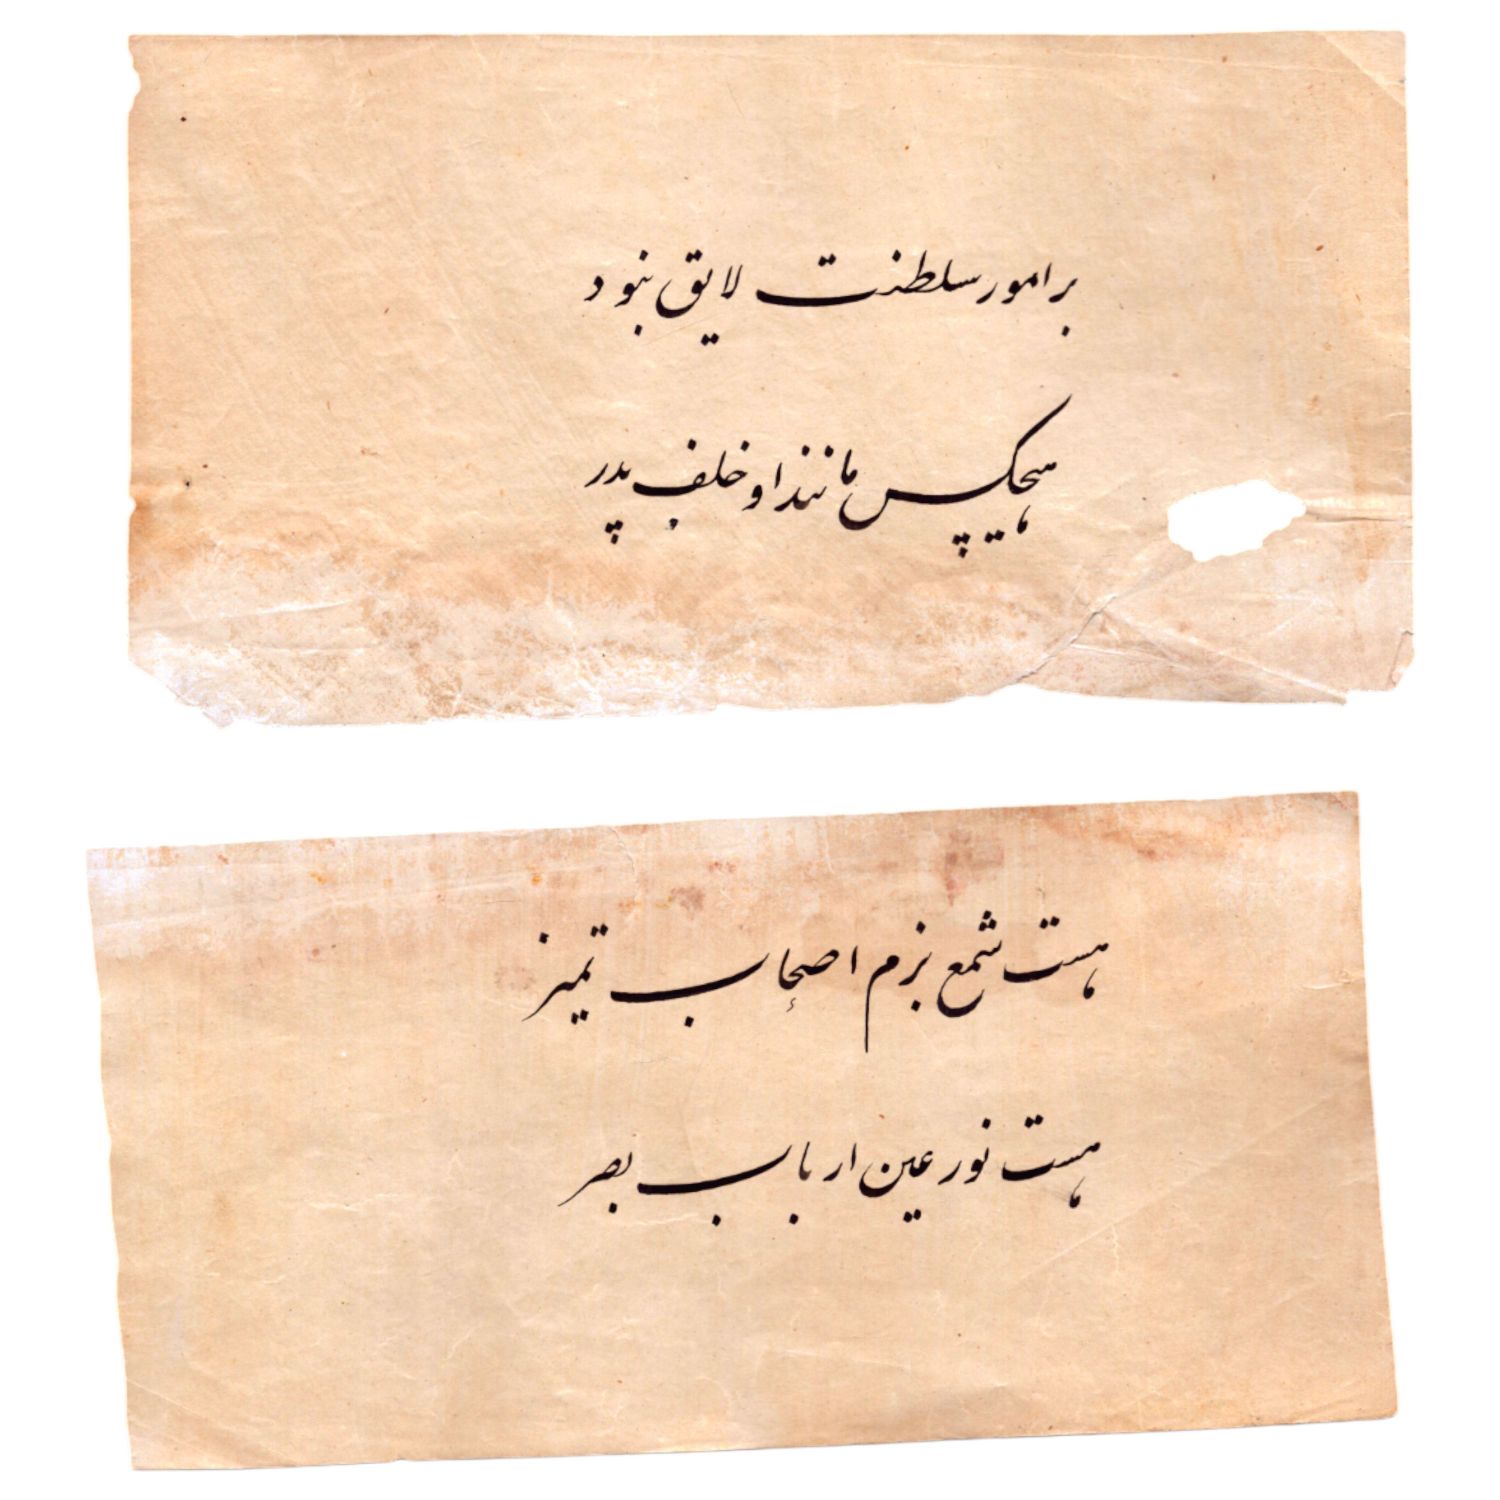 بر امور سلطنت لایق نبود
هیچکس مانند او خلف پدر
هست شمع بزم اصحاب تمیز
هست نور عین ارباب بصر